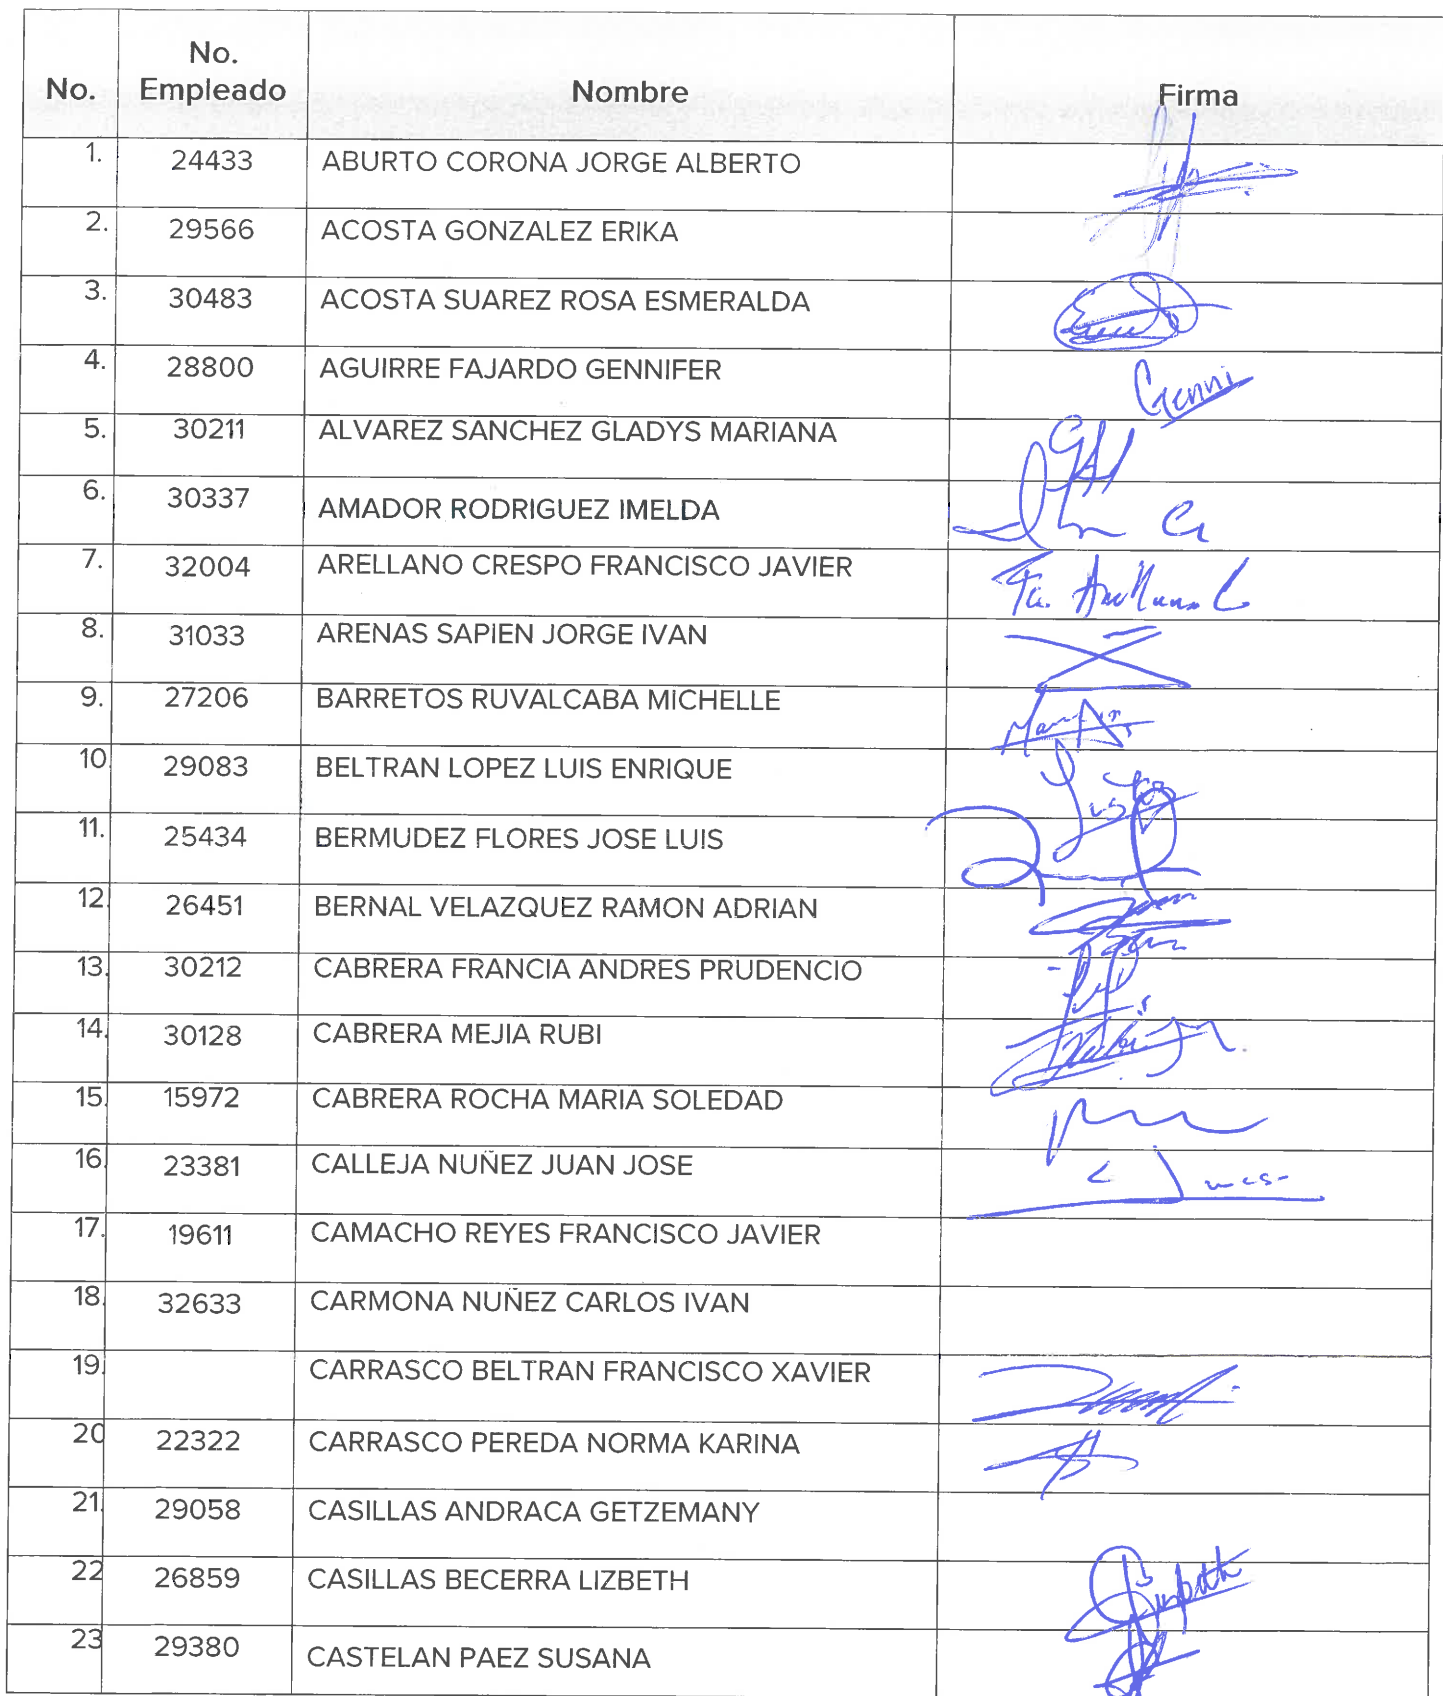 No. No. Empleado Nombre Firma
1. 24433 ABURTO CORONA JORGE ALBERTO
2. 29566 ACOSTA GONZALEZ ERIKA
3. 30483 ACOSTA SUAREZ ROSA ESMERALDA
4. 28800 AGUIRRE FAJARDO GENNIFER Genni
5. 30211 ALVAREZ SANCHEZ GLADYS MARIANA
6. 30337 AMADOR RODRIGUEZ IMELDA
7. 32004 ARELLANO CRESPO FRANCISCO JAVIER
8. 31033 ARENAS SAPIEN JORGE IVAN
9. 27206 BARRETOS RUVALCABA MICHELLE
10 29083 BELTRAN LOPEZ LUIS ENRIQUE
11. 25434 BERMUDEZ FLORES JOSE LUIS
12 26451 BERNAL VELAZQUEZ RAMON ADRIAN
13. 30212 CABRERA FRANCIA ANDRES PRUDENCIO
14. 30128 CABRERA MEJIA RUBI
15. 15972 CABRERA ROCHA MARIA SOLEDAD
16 23381 CALLEJA NUÑEZ JUAN JOSE
17. 19611 CAMACHO REYES FRANCISCO JAVIER
18. 32633 CARMONA NUÑEZ CARLOS IVAN
19. CARRASCO BELTRAN FRANCISCO XAVIER
20 22322 CARRASCO PEREDA NORMA KARINA
21. 29058 CASILLAS ANDRACA GETZEMANY
22 26859 CASILLAS BECERRA LIZBETH
23 29380 CASTELAN PAEZ SUSANA